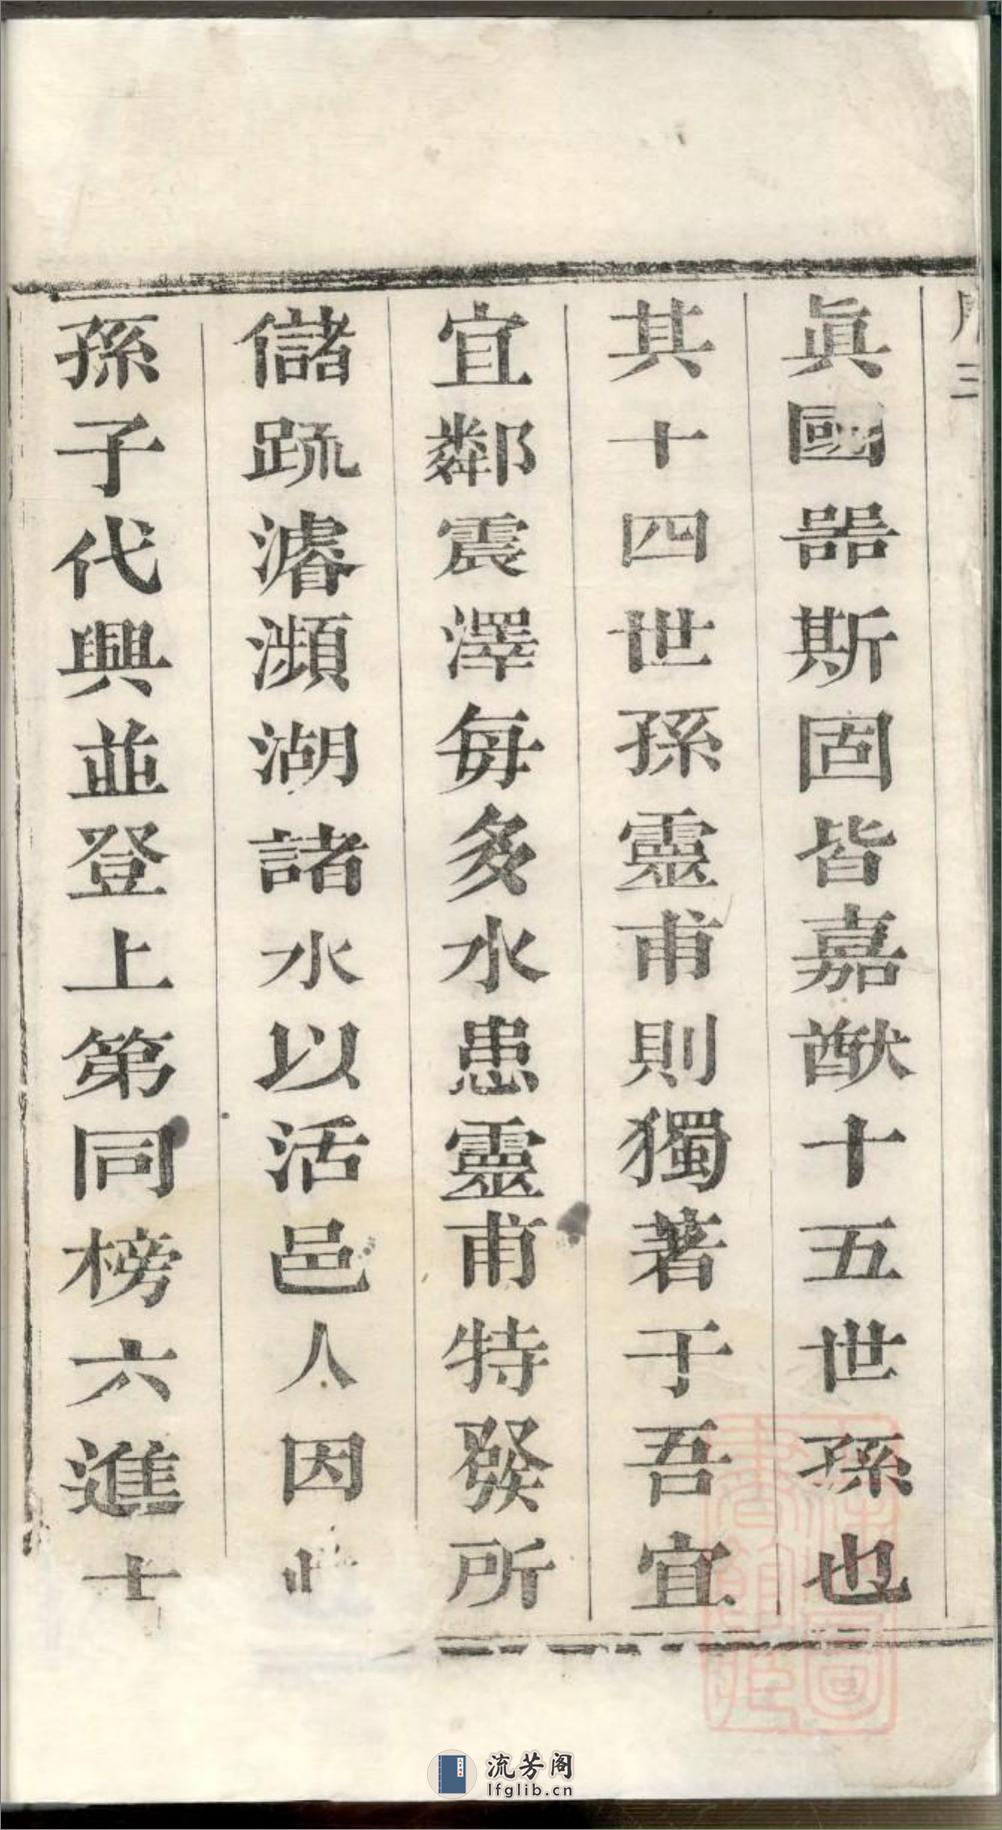 眞國噐斯固皆嘉猷十五世孫也
其十四世孫靈甫則獨著于吾宜
宜鄰震澤每多水患靈甫特發所
儲䟽濬瀕湖諸水以活邑人因
孫子代興並登上第同榜六進士
流芳阁
lfglib.cn